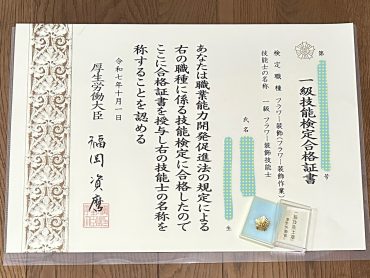 一級技能検定合格証書
号
検定職種 フラワー装飾(フラワー装飾作業)
技能士の名称 一級 フラワー装飾技能士
氏名
生
あなたは職業能力開発促進法の規定による
右の職種に係る技能検定に合格したので
ここに合格証書を授与し右の技能士の名称を
称することを認める
令和七年十月一日
厚生労働大臣 福岡資麿